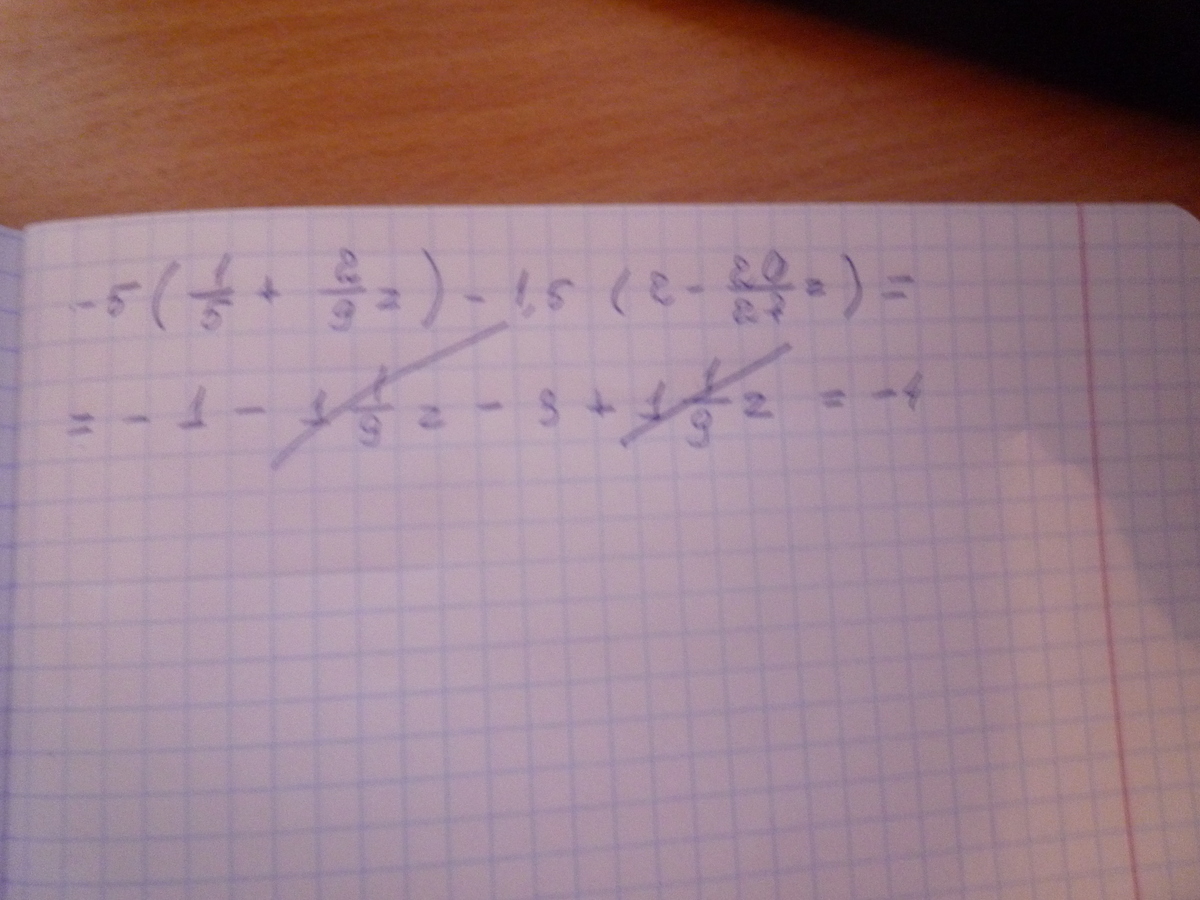 -5(1/5 + 2/9 z) - 1,5 (2 - 20/27 z) =
= - 1 - 1 1/9 z - 3 + 1 1/9 z = -4